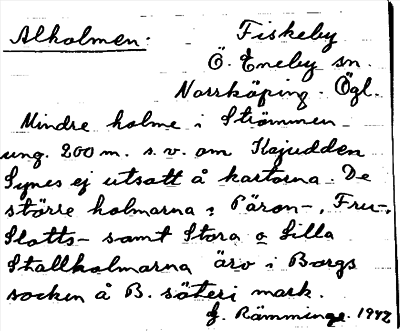 Alholmen: Fiskeby
Ö. Eneby sn.
Norrköping. Ögl.
Mindre holme i Strömmen
ung. 200 m. s.v. om Kajudden
Synes ej utsatt å kartorna. De
större holmarna: Päron-, Fru-,
Slotts- samt Stora o Lilla
Stallholmarna äro i Borgs
socken å B. säteri mark.
G. Rämminge. 1942